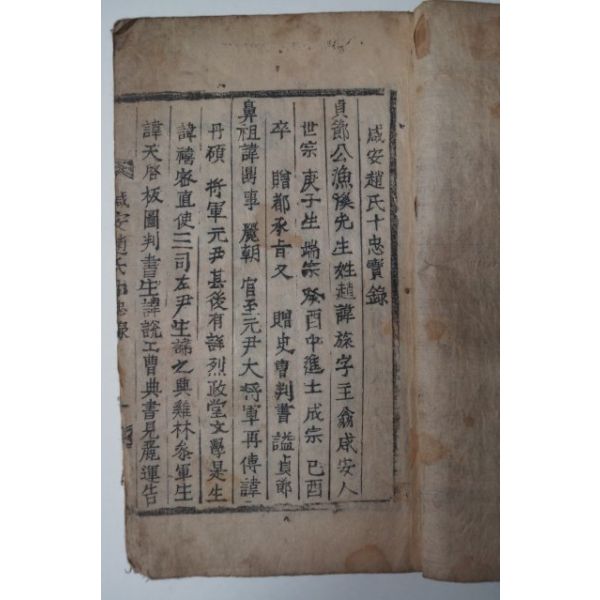 咸安趙氏十忠實錄
貞節公漁溪先生姓趙諱旅字主翁咸安人
世宗 庚子生 端宗 癸酉中進士 成宗 己酉
卒 贈都承旨又 贈吏曹判書 謚貞節
鼻祖諱鼎事 麗朝 官至元尹大將軍再傳諱
丹碩 將軍元尹甚後有諱烈政堂文學是生
諱禧密直使三司左尹生諱之興雞林叅軍生
諱天啓板圖判書生諱悅工曹典書見麗運告
咸安趙氏十忠錄